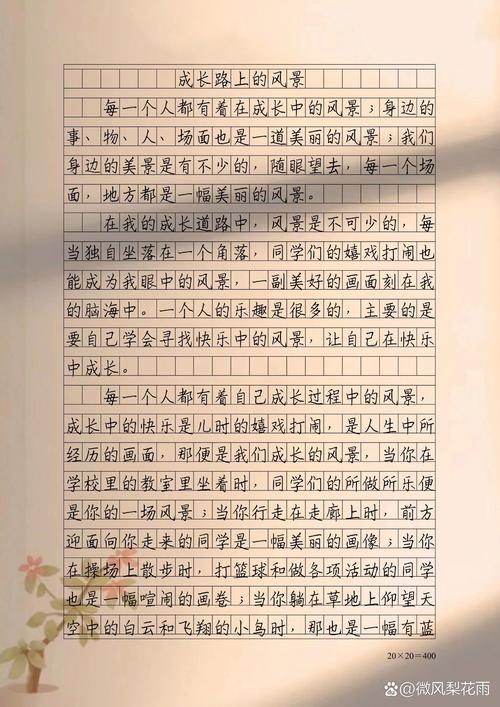 成长路上的风景
每一个人都有着在成长中的风景；身边的
事、物、人、场面也是一道美丽的风景；我们
身边的美景是有不少的，随眼望去，每一个场
面，地方都是一幅美丽的风景。
在我的成长道路中，风景是不可少的，每
当独自坐落在一个角落，同学们的嬉戏打闹也
能成为我眼中的风景，一副美好的画面刻在我
的脑海中。一个人的乐趣是很多的，主要的是
要自己学会寻找快乐中的风景，让自己在快乐
中成长。
每一个人都有着自己成长过程中的风景，
成长中的快乐是儿时的嬉戏打闹，是人生中所
经历的画面，那便是我们成长的风景，当你在
学校里的教室里坐着时，同学们的所做所乐便
是你的一场风景；当你行走在走廊上时，前方
迎面向你走来的同学是一幅美丽的画像；当你
在操场上散步时，打篮球和做各项活动的同学
也是一幅喧闹的画卷；当你躺在草地上仰望天
空中的白云和飞翔的小鸟时，那也是一幅有蓝
20×20=400
@微风梨花雨